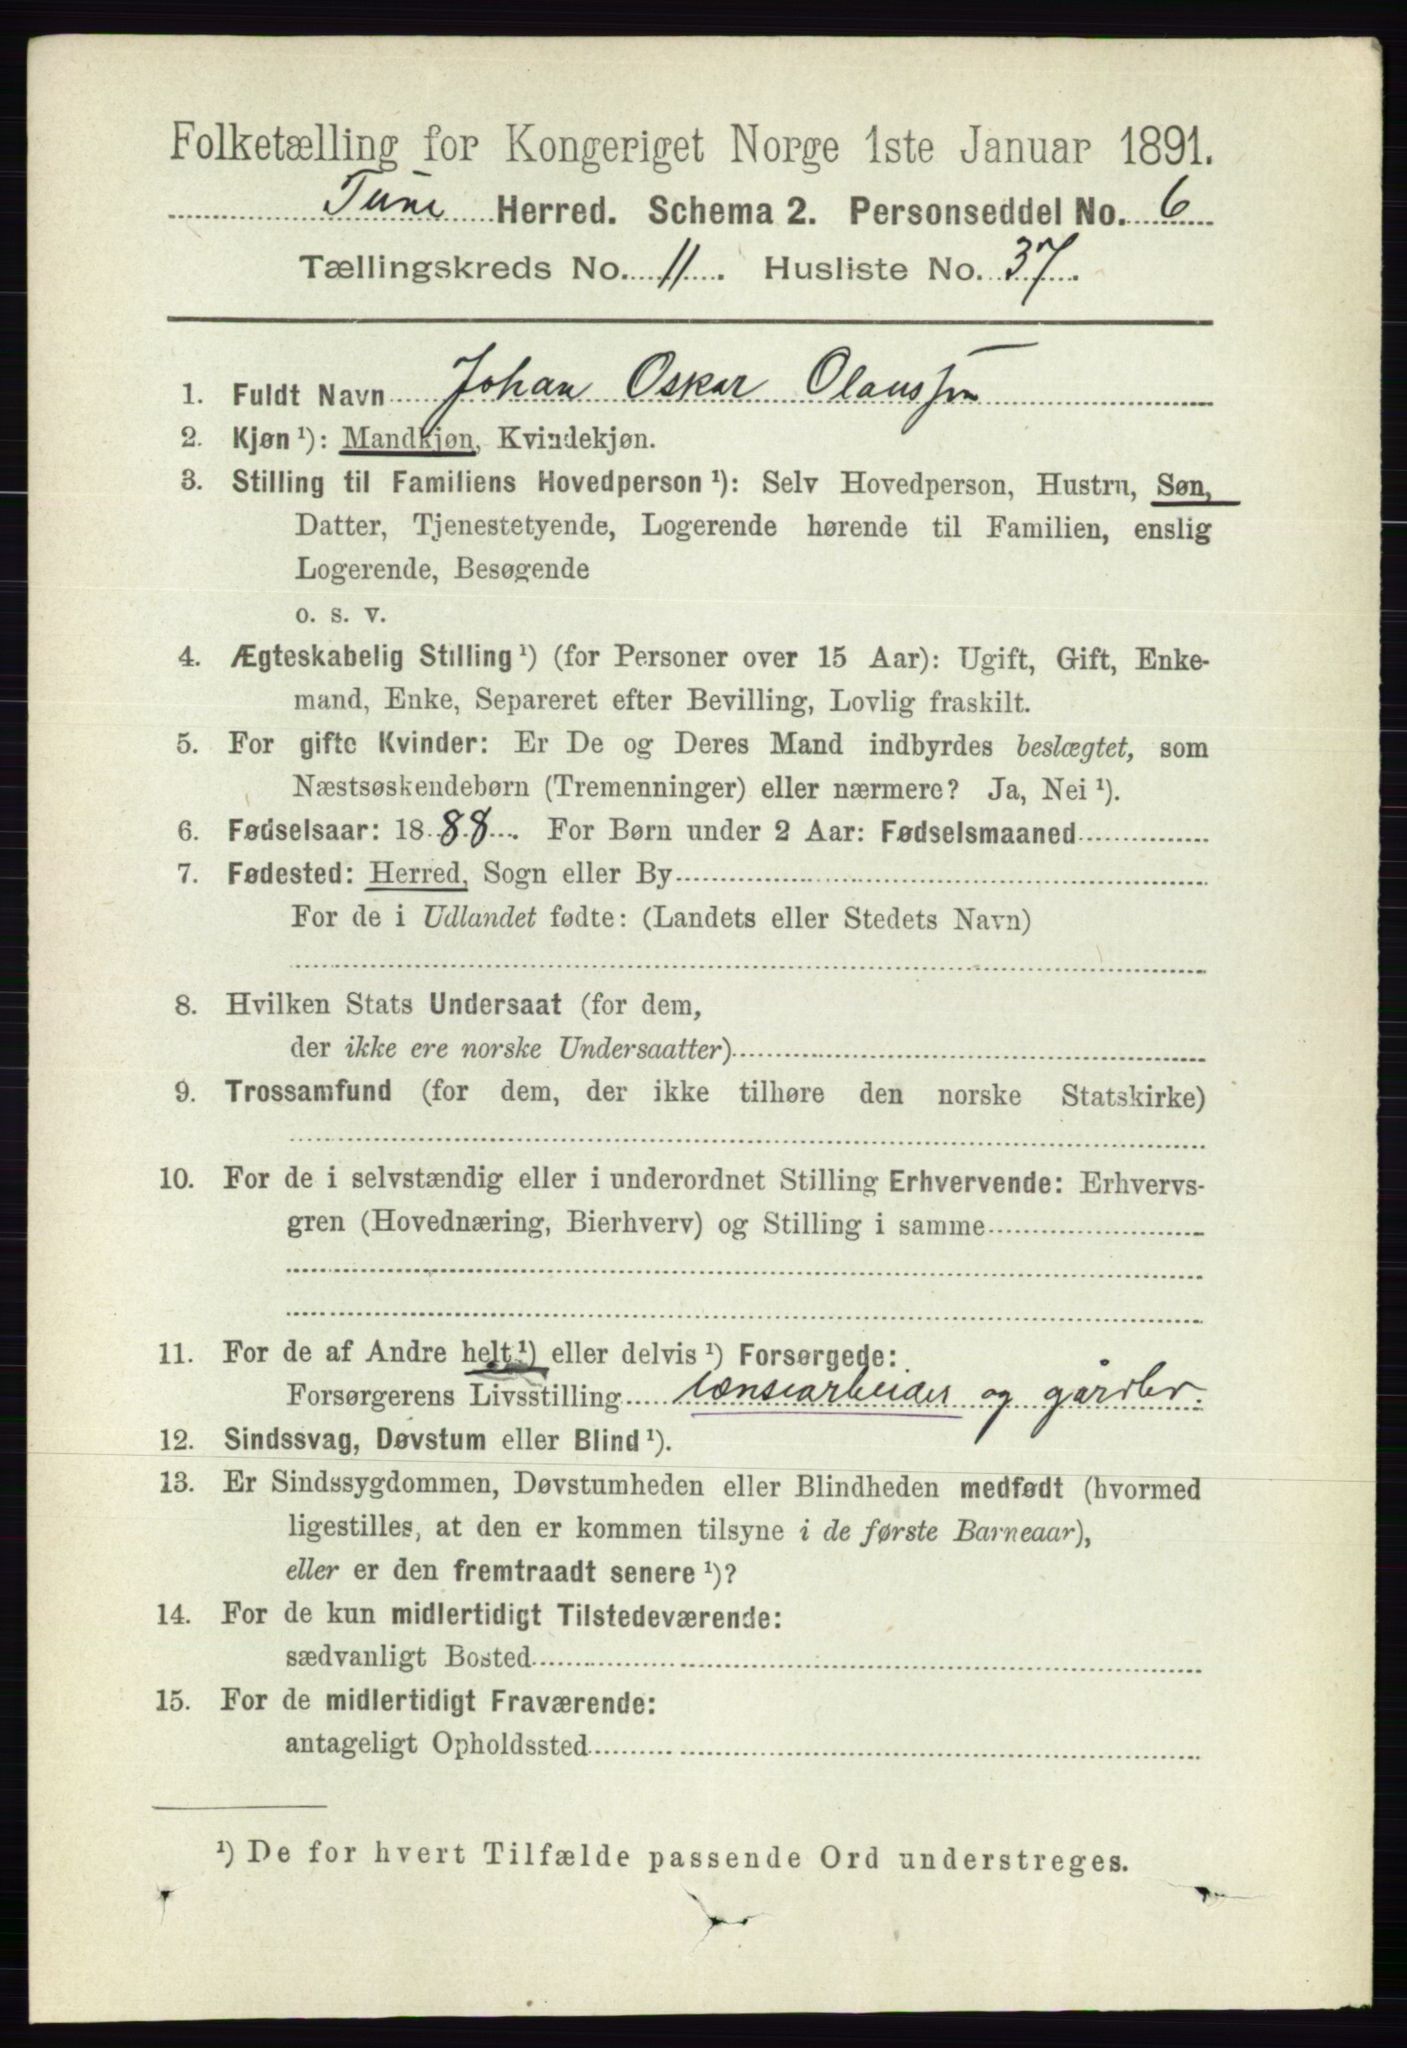 Folketælling for Kongeriget Norge 1ste Januar 1891.
Tune Herred. Schema 2. Personseddel No. 6
Tællingskreds No. 11. Husliste No. 37.
1. Fuldt Navn Johan Oskar Olaussen
2. Kjøn ¹): Mandkjøn, Kvindekjøn.
3. Stilling til Familiens Hovedperson ¹): Selv Hovedperson, Hustru, Søn,
Datter, Tjenestetyende, Logerende hørende til Familien, enslig
Logerende, Besøgende
o. s. v.
4. Ægteskabelig Stilling ¹) (for Personer over 15 Aar): Ugift, Gift, Enke-
mand, Enke, Separeret efter Bevilling, Lovlig fraskilt.
5. For gifte Kvinder: Er De og Deres Mand indbyrdes beslægtet, som
Næstsøskendebørn (Tremenninger) eller nærmere? Ja, Nei ¹).
6. Fødselsaar: 1888. For Børn under 2 Aar: Fødselsmaaned
7. Fødested: Herred, Sogn eller By
For de i Udlandet fødte: (Landets eller Stedets Navn)
8. Hvilken Stats Undersaat (for dem,
der ikke ere norske Undersaatter)
9. Trossamfund (for dem, der ikke tilhøre den norske Statskirke)
10. For de i selvstændig eller i underordnet Stilling Erhvervende: Erhvervs-
gren (Hovednæring, Bierhverv) og Stilling i samme
11. For de af Andre helt ¹) eller delvis ¹) Forsørgede:
Forsørgerens Livsstilling lænsearbeider og gårdbr.
12. Sindssvag, Døvstum eller Blind ¹).
13. Er Sindssygdommen, Døvstumheden eller Blindheden medfødt (hvormed
ligestilles, at den er kommen tilsyne i de første Barneaar),
eller er den fremtraadt senere ¹)?
14. For de kun midlertidigt Tilstedeværende:
sædvanligt Bosted
15. For de midlertidigt Fraværende:
antageligt Opholdssted
¹) De for hvert Tilfælde passende Ord understreges.